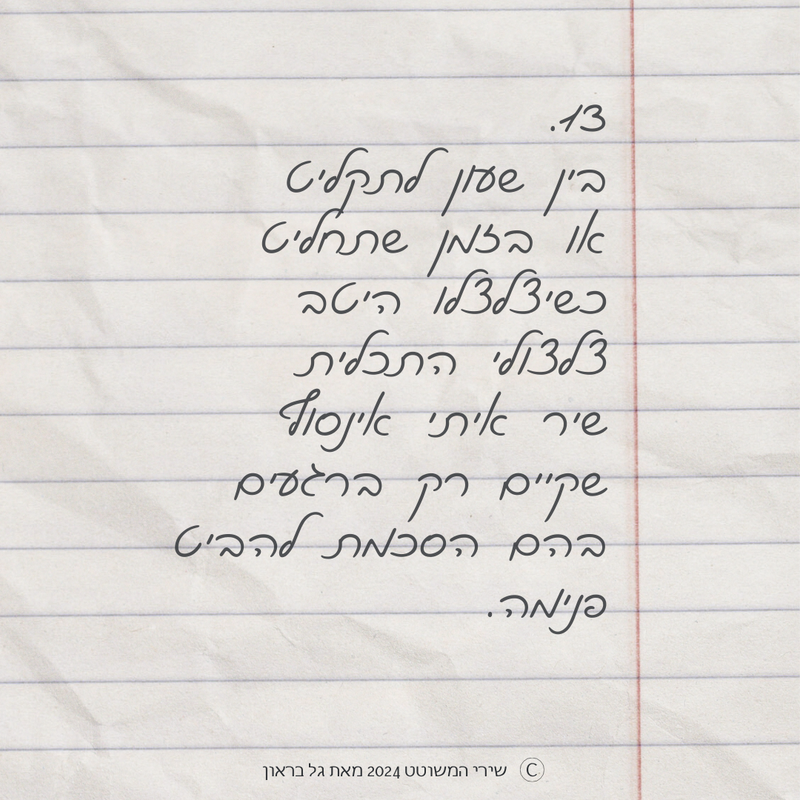 13.
בין שעון לתקליט
או בזמן שתחליט
כשיצלצלו היטב
צלצולי התכלית
שיר איתי אינסוף
שקיים רק ברגעים
בהם הסכמת להביט
פנימה.
© שירי המשוטט 2024 מאת גל בראון